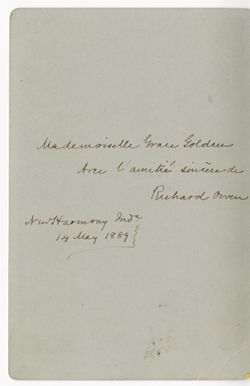 Mademoiselle Grace Golden
Avec l'amitié sincère de
Richard Owen
New Harmony Inda
14 May 1889